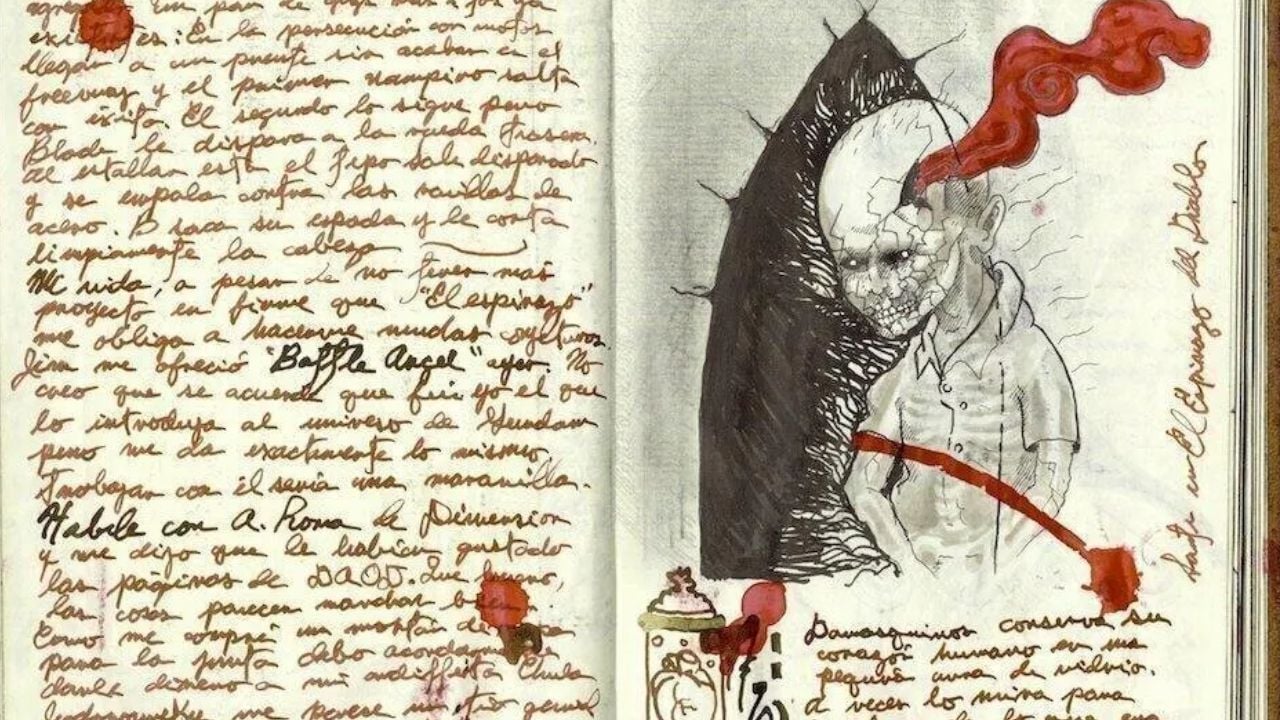 agregale. Un par de
existentes: En la persecución con motos
llegan a un puente sin acabar en el
freeway y el primer vampiro salta
con éxito. El segundo lo sigue pero
Blade le dispara a la rueda trasera.
al estallar esta el tipo sale disparado
y se empala contra las varillas de
acero. B saca su espada y le corta
limpiamente la cabeza
Mi vida, a pesar de no tener más
proyecto en firme que "El espinazo"
me obliga a hacerme muchas
Jim me ofreció "Battle Angel" ayer. No
creo que se acuerde que fui yo el que
lo introdujo al universo de Gundam
pero me da exactamente lo mismo.
Trabajar con él sería una maravilla.
Hablé con A. Roma de Dimension
y me dijo que le habían gustado
las páginas de
las cosas parecen marchar bien.
Como me compré un montón de
para la junta debo
darle dinero a mi
me parece un tío genial
Santi en El Espinazo del Diablo
Damasquinos conserva su
corazón humano en una
pequeña urna de vidrio.
A veces lo mira para